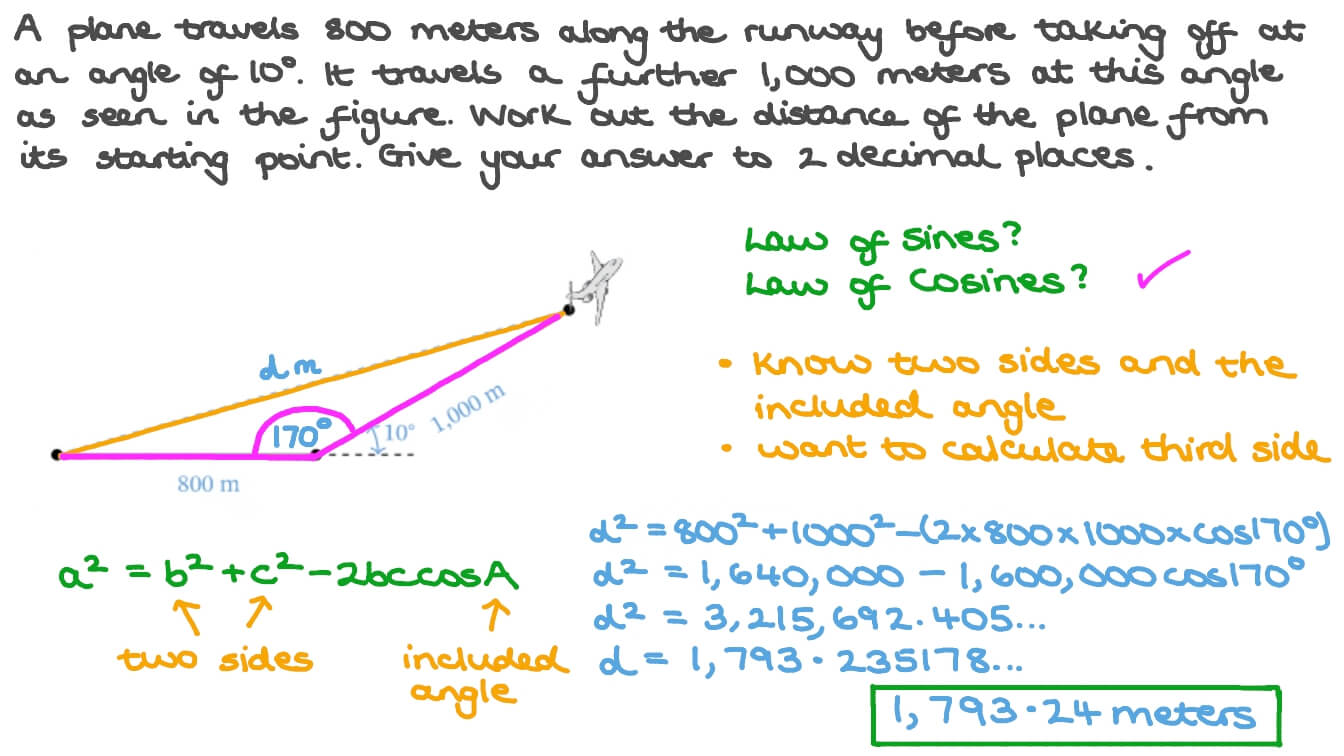 A plane travels 800 meters along the runway before taking off at
an angle of 10°. It travels a further 1,000 meters at this angle
as seen in the figure. Work out the distance of the plane from
its starting point. Give your answer to 2 decimal places.
Law of Sines?
Law of Cosines? ✓
d m
170°
10°
1,000 m
800 m
• Know two sides and the
included angle
• want to calculate third side
a² = b² + c² − 2bccosA
two sides
included
angle
d² = 800² + 1000² − (2 × 800 × 1000 × cos170°)
d² = 1,640,000 − 1,600,000 cos170°
d² = 3,215,692.405...
d = 1,793.235178...
1,793.24 meters